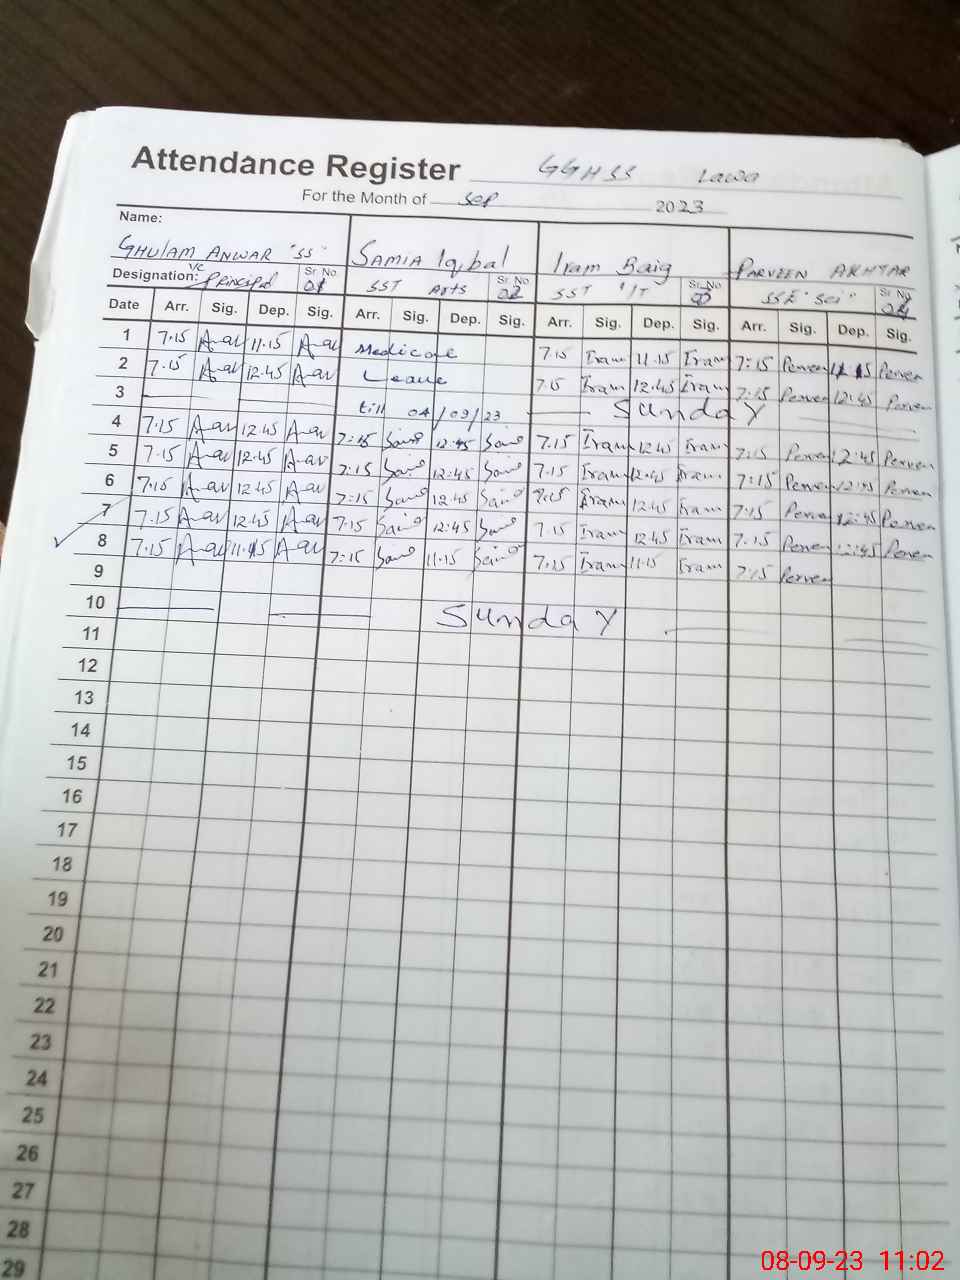 Attendance Register GGHSS Lawa
For the Month of Sep 2023
Name:
GHULAM ANWAR "SS" SAMIA Iqbal Iram Baig PARVEEN AKHTAR
Designation: V/C Principal Sr No 01 SST Arts Sr No 02 SST I/T Sr No SSE "Sci" Sr No 04
Date Arr. Sig. Dep. Sig. Arr. Sig. Dep. Sig. Arr. Sig. Dep. Sig. Arr. Sig. Dep. Sig.
1 7.15 11.15 Medical 7.15 Iram 11.15 Iram 7:15 Perveen 11.15 Perveen
2 7.15 12.45 Leave 7.15 Iram 12.45 Iram 7:15 Perveen 12:45 Perveen
3 till 04/09/23 Sunday
4 7.15 12.45 7:15 12.45 7.15 Iram 12.45 Iram 7:15 Perveen 12:45 Perveen
5 7.15 12.45 7:15 12.45 7.15 Iram 12.45 Iram 7:15 Perveen 12:45 Perveen
6 7.15 12.45 7:15 12.45 7.15 Iram 12.45 Iram 7:15 Perveen 12:45 Perveen
7 7.15 12.45 7:15 12.45 7.15 Iram 12.45 Iram 7:15 Perveen 12:45 Perveen
8 7.15 11.15 7:15 11.15 7.15 Iram 11.15 Iram 7:15 Perveen
9
10 Sunday
11
12
13
14
15
16
17
18
19
20
21
22
23
24
25
26
27
28
29
08-09-23 11:02